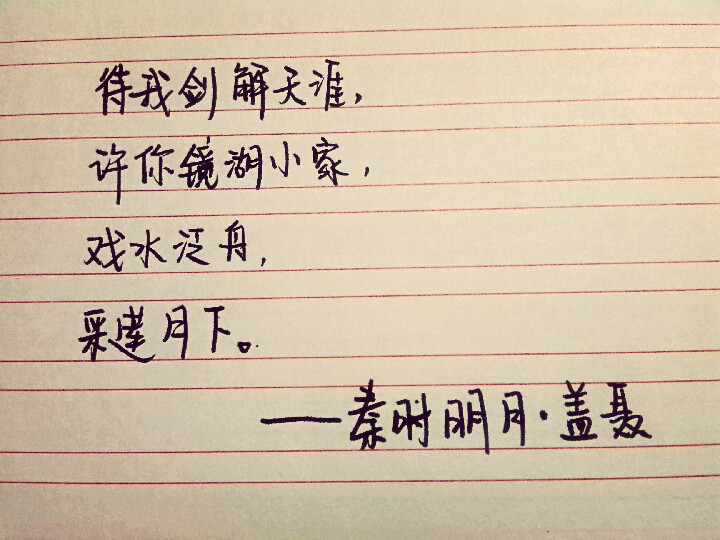 待我剑解天涯，
许你镜湖小家，
戏水泛舟，
采莲月下。
——秦时明月·盖聂